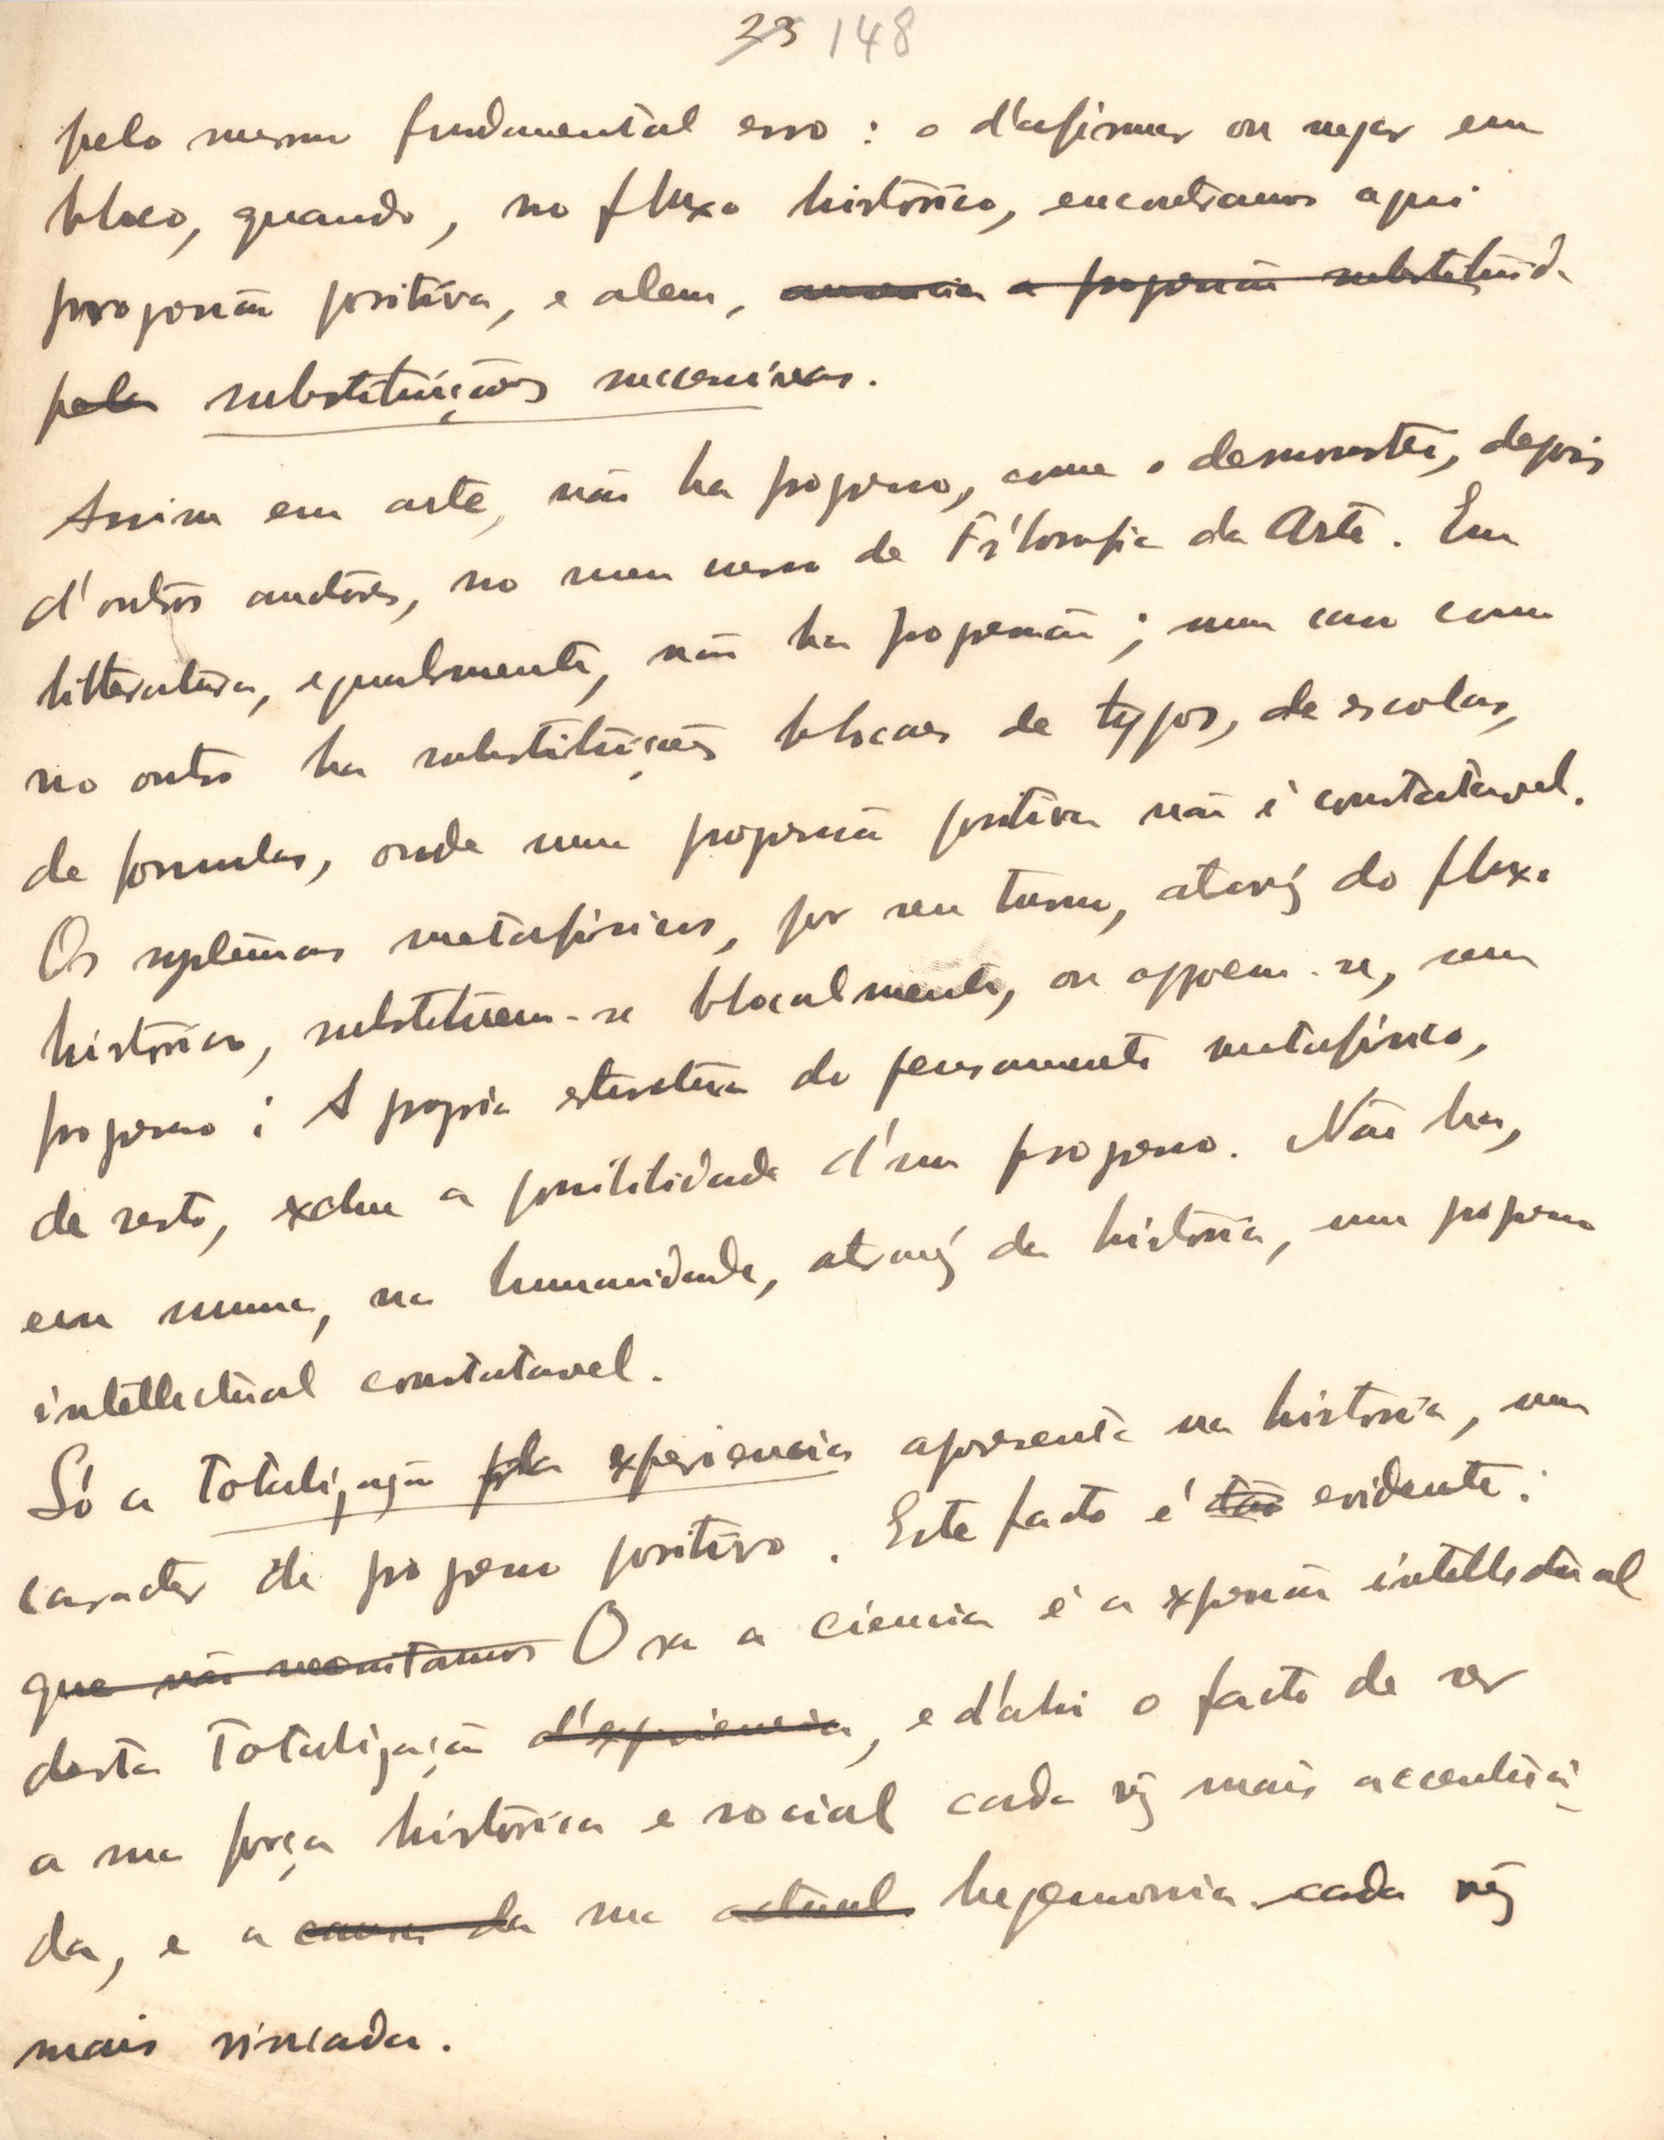 23 148
pelo mesmo fundamental erro : o d'afirmar ou negar em
bloco, quando, no fluxo historico, encontramos aqui
progressão positiva, e alem, a progressão substituida
pela substituições successivas.
Assim em arte, não ha progresso, como o demonstrei, depois
d'outros auctores, no meu curso de Filosofia da Arte. Em
litteratura, egualmente, não ha progressão ; num caso como
no outro ha substituições blocaes de typos, de escolas,
de formulas, onde uma progressão positiva não é constatavel.
Os systemas metafisicos, por seu turno, atravez do fluxo
historico, substituem-se blocalmente, ou oppoem-se, sem
progresso : A propria estructura do pensamento metafisico,
de resto, exclue a possibilidade d'um progresso. Não ha,
em summa, na humanidade, atravez da historia, um progresso
intellectual constatavel.
Só a Totalização pela experiencia apresenta na historia, um
caracter de progresso positivo. Este facto é tão evidente :
que não necessitamos Ora a ciencia é a expressão intellectual
desta Totalização d'experiencia, e d'ahi o facto de ser
a sua força historica e social cada vez mais accentua-
da, e a causa da sua actual hegemonia cada vez
mais vincada.